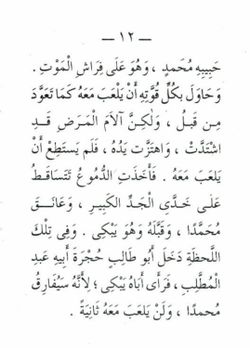 — ١٢ —
حَبِيبِهِ مُحَمدٍ ، وَهُوَ عَلَى فِرَاشِ الْمَوْتِ .
وَحَاوَلَ بِكُلِّ قُوَّتِهِ أَنْ يَلْعَبَ مَعَهُ كَمَا تَعَوَّدَ
مِن قَبلُ ، وَلٰكِنَّ آلَامَ الْمَرَضِ قَدِ
اشْتَدَّتْ ، وَاهْتَزَّتْ يَدُهُ ، فَلَم يَستَطِعْ أَنْ
يَلْعَبَ مَعَهُ . فَأَخَذَتِ الدُّمُوعُ تَتَسَاقَطُ
عَلَى خَدَّيِ الْجَدِّ الْكَبِيرِ ، وَعَانَقَ
مُحَمَّدًا ، وَقَبَّلَهُ وَهُوَ يَبْكِى . وَفِى تِلْكَ
اللَّحظَةِ دَخَلَ أَبُو طَالِبٍ حُجْرَةَ أَبِيهِ عَبدِ
الْمُطَّلِبِ ، فَرَأَى أَبَاهُ يَبْكِى ؛ لِأَنَّهُ سَيُفَارِقُ
مُحمدًا ، وَلَنْ يَلعَبَ مَعَهُ ثَانِيَةً .